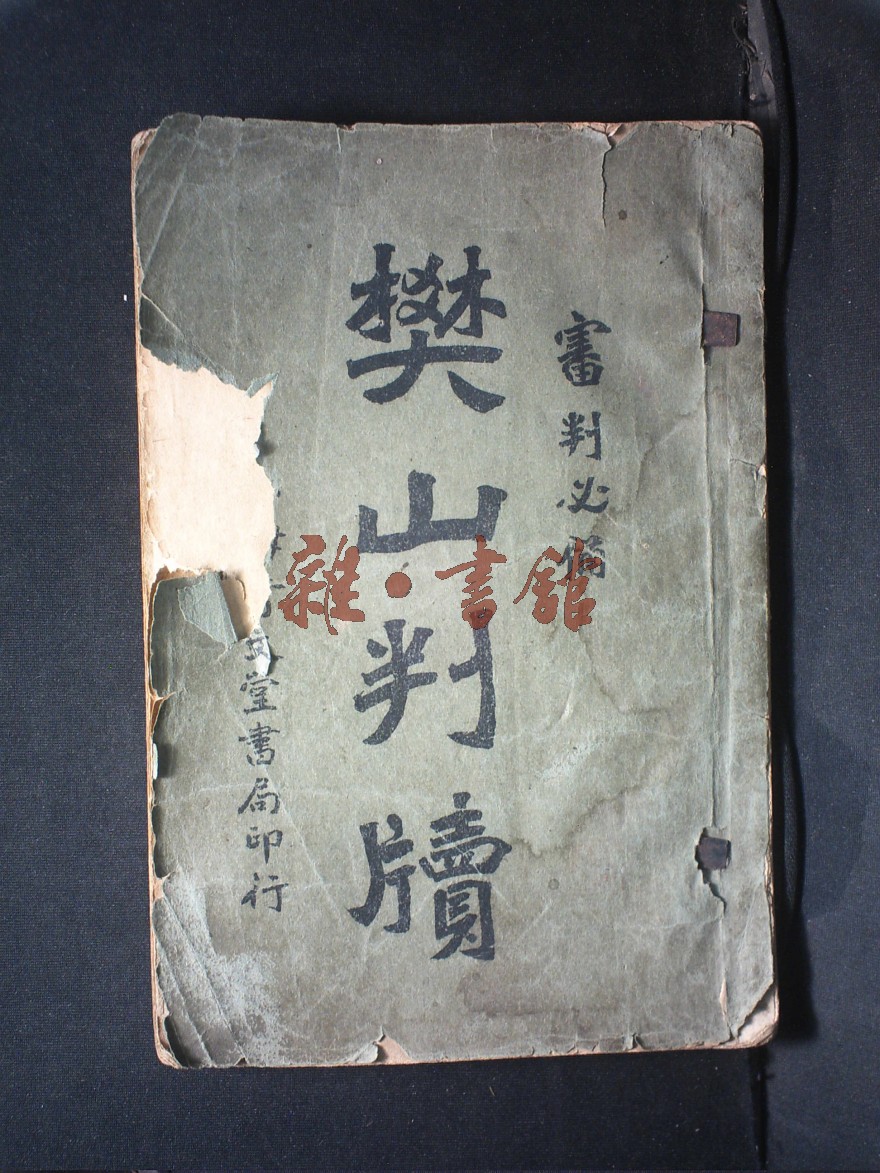 審判必備
樊山判牘
文堂書局印行
雜・書館